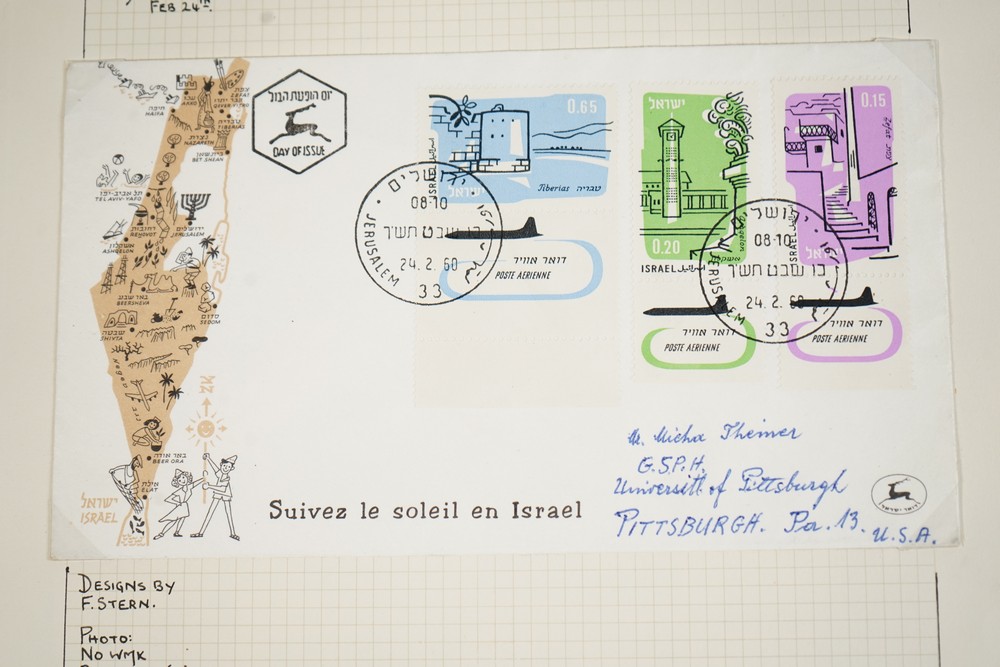 FEB 24TH.
חיפה
HAIFA
עכו
AKKO
צפת
ZEFAT
טבריה
TIBERIAS
נצרת
NAZARETH
בית שאן
BET SHEAN
תל אביב-יפו
TEL AVIV-YAFO
רחובות
REHOVOT
ירושלים
JERUSALEM
אשקלון
ASHKELON
באר שבע
BEERSHEVA
סדום
SEDOM
שבטה
SHIVTA
Negev
באר אורה
BEER ORA
אילת
ELAT
ישראל
ISRAEL
יום הופעת הבול
DAY OF ISSUE
0.65
ישראל
Tiberias טבריה
דואר אוויר
POSTE AERIENNE
ירושלים
08-10
כו שבט תש"ך
24.2.60
JERUSALEM
33
ישראל
0.20
ISRAEL
דואר אוויר
POSTE AERIENNE
0.15
Zefat צפת
ISRAEL
דואר אוויר
POSTE AERIENNE
08-10
כו שבט תש"ך
24.2.60
JERUSALEM
33
Suivez le soleil en Israel
Mr. Micha Theimer
G.S.P.H.
Universitt of Pittsburgh
PITTSBURGH. Pa. 13.
U.S.A.
דואר ישראל
DESIGNS BY
F. STERN.
PHOTO:
NO WMK